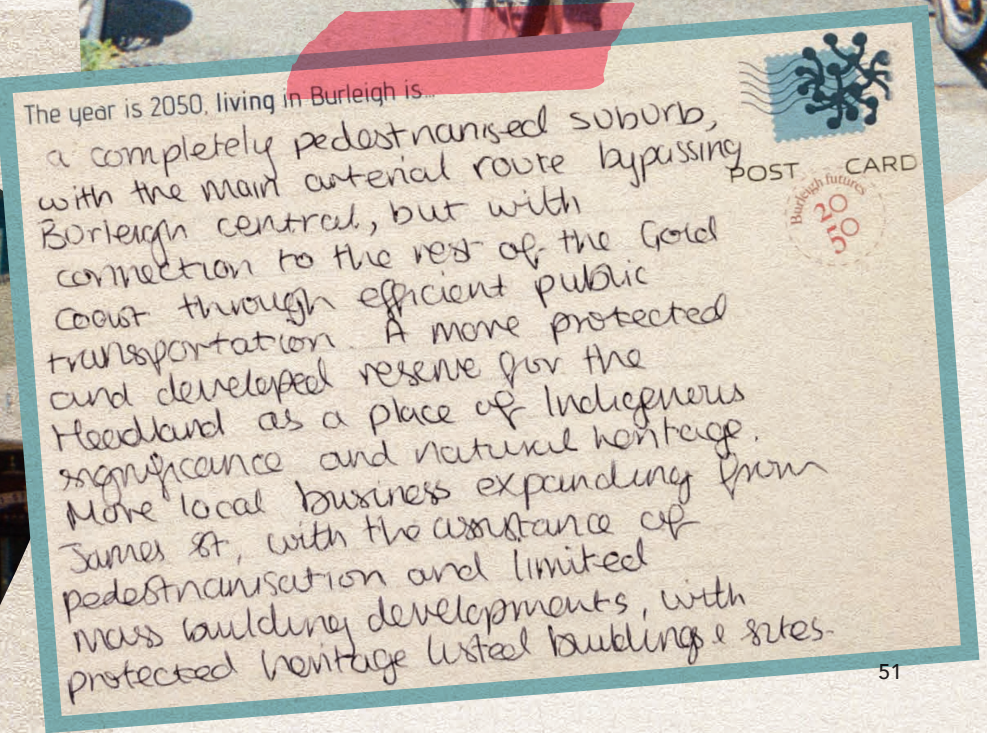 The year is 2050, living in Burleigh is...
a completely pedestrianised suburb,
with the main arterial route bypassing
Burleigh central, but with
connection to the rest of the Gold
Coast through efficient public
transportation. A more protected
and developed reserve for the
Headland as a place of Indigenous
significance and natural heritage.
More local business expanding from
James St, with the assistance of
pedestrianisation and limited
mass building developments, with
protected heritage listed buildings & sites.
POST CARD
Burleigh futures
20
50
51